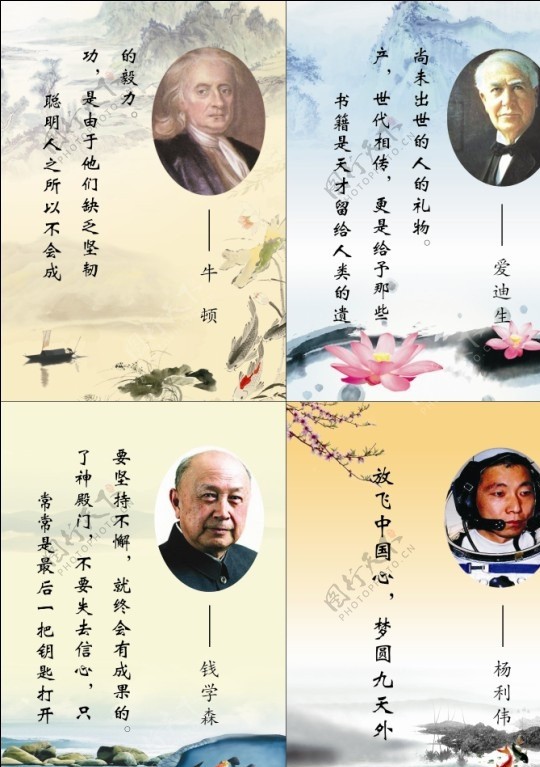 聪明人之所以不会成
功，是由于他们缺乏坚韧
的毅力。
——牛顿
书籍是天才留给人类的遗
产，世代相传，更是给予那些
尚未出世的人的礼物。
——爱迪生
常常是最后一把钥匙打开
了神殿门，不要失去信心，只
要坚持不懈，就终会有成果的。
——钱学森
放飞中国心，梦圆九天外
——杨利伟
图行天下
PHOTOPHOTO.CN
图行天下
PHOTOPHOTO.CN
图行天下
PHOTOPHOTO.CN
图行天下
PHOTOPHOTO.CN